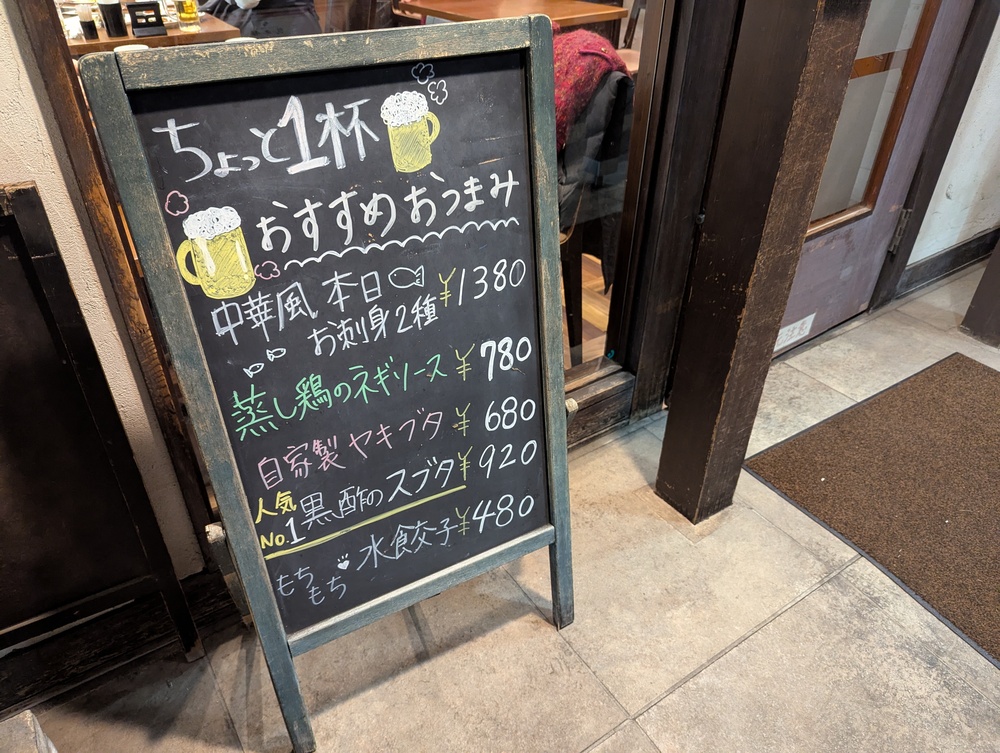 ちょっと1杯
おすすめおつまみ
中華風 本日
お刺身2種 ¥1380
蒸し鶏のネギソース ¥780
自家製ヤキブタ ¥680
人気No.1 黒酢のスブタ ¥920
もちもち 水餃子 ¥480
注意